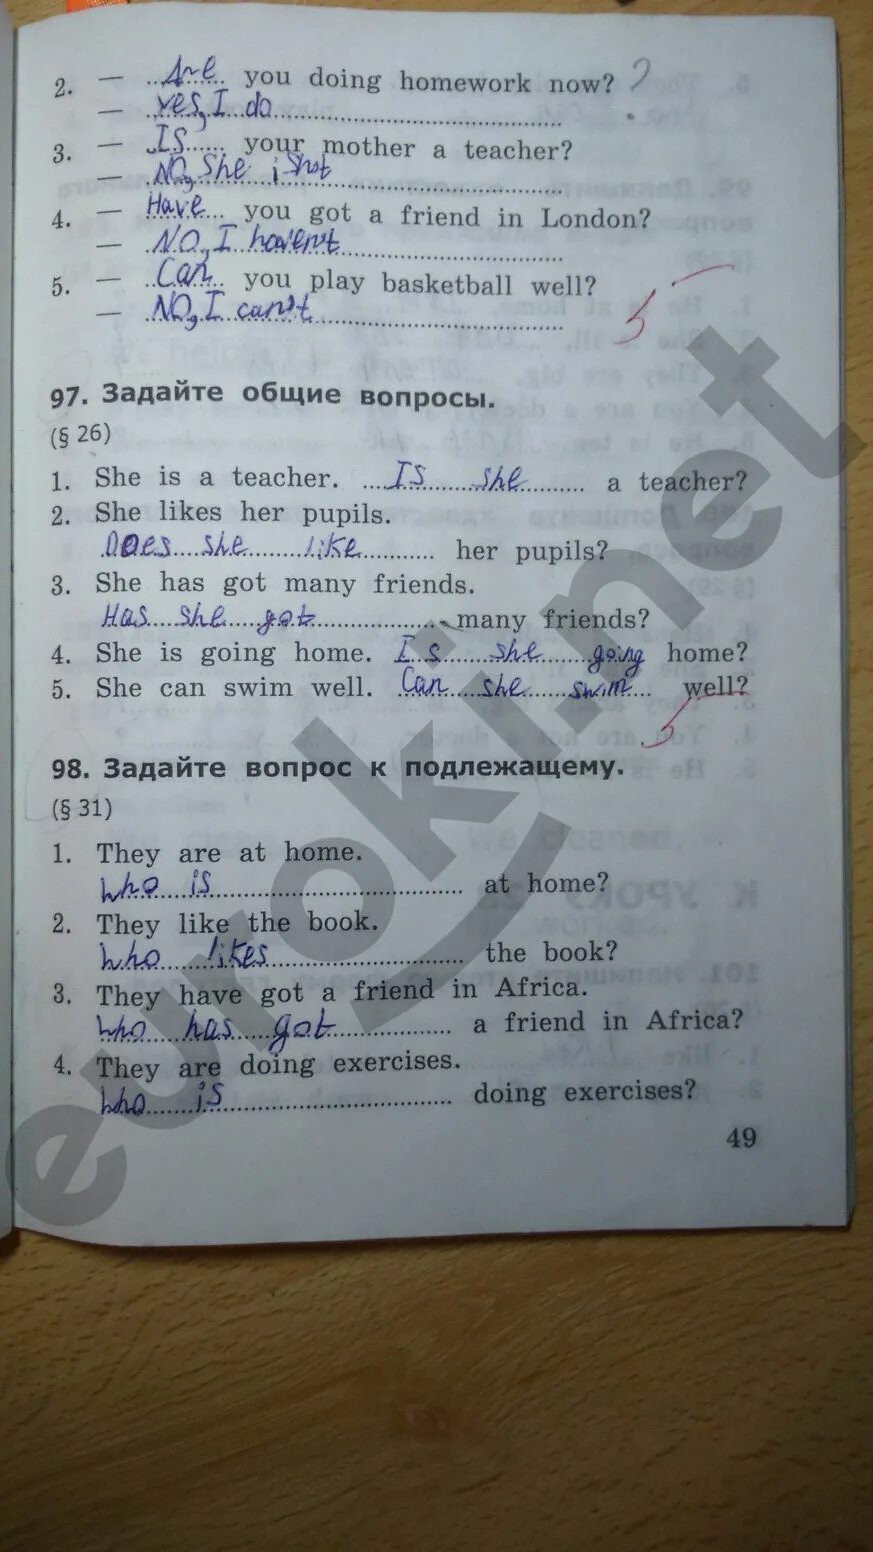 2. — Are you doing homework now?
— Yes, I do
3. — Is your mother a teacher?
— NO, She is not
4. — Have you got a friend in London?
— NO, I haven't
5. — Can you play basketball well?
— NO, I can't
97. Задайте общие вопросы.
(§ 26)
1. She is a teacher. Is she a teacher?
2. She likes her pupils.
Does she like her pupils?
3. She has got many friends.
Has she got many friends?
4. She is going home. Is she going home?
5. She can swim well. Can she swim well?
98. Задайте вопрос к подлежащему.
(§ 31)
1. They are at home.
Who is at home?
2. They like the book.
Who likes the book?
3. They have got a friend in Africa.
Who has got a friend in Africa?
4. They are doing exercises.
Who is doing exercises?
49
euroki.net